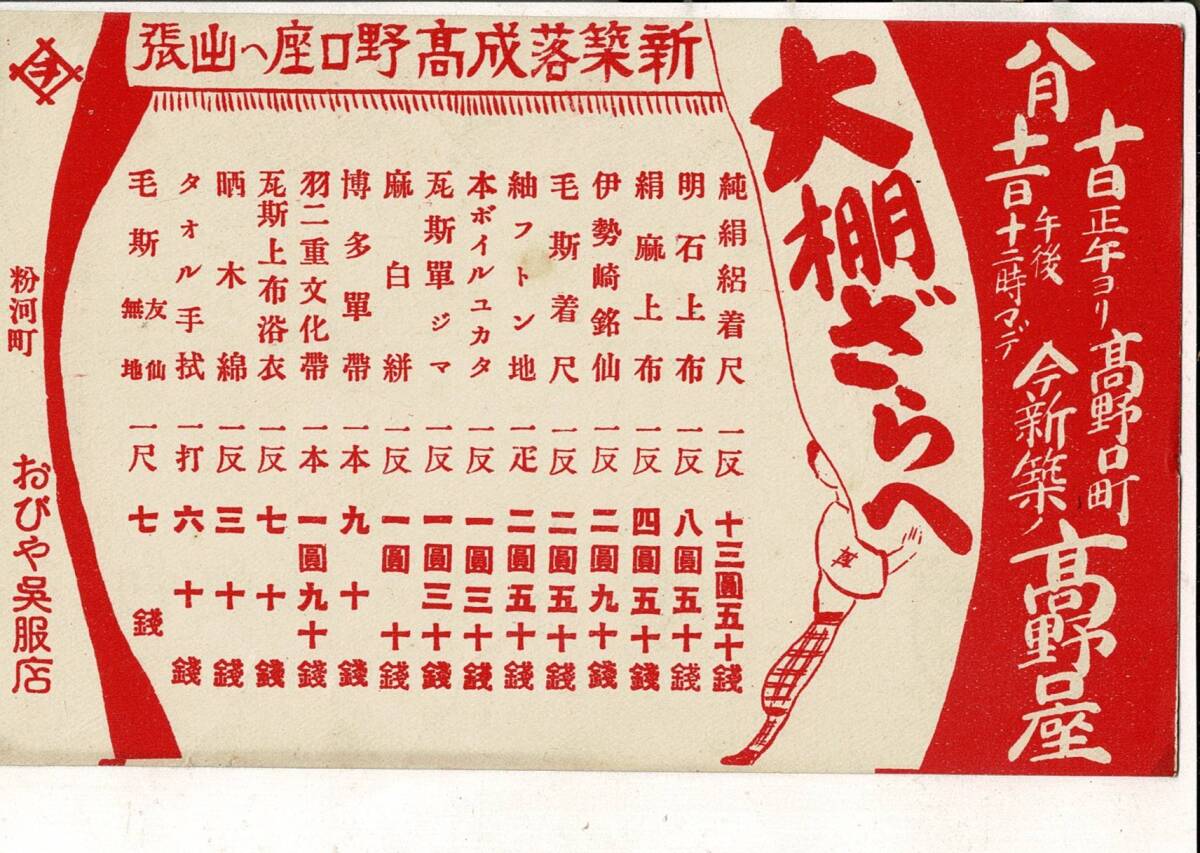 八月
十日正午ヨリ
十一日午後十二時マデ
高野口町
今新築ノ高野口座
大棚ざらへ
新築落成高野口座へ出張
純絹絽着尺 一反 十三圓五十錢
明石上布 一反 八圓五十錢
絹麻上布 一反 四圓五十錢
伊勢崎銘仙 一反 二圓九十錢
毛斯着尺 一反 二圓五十錢
紬フトン地 一疋 二圓五十錢
本ボイルユカタ 一反 一圓三十錢
瓦斯單ジマ 一反 一圓三十錢
麻白絣 一反 一圓十錢
博多單帶 一本 九十錢
羽二重文化帶 一本 一圓九十錢
瓦斯上布浴衣 一反 七十錢
晒木綿 一反 三十錢
タオル手拭 一打 六十錢
毛斯 友仙 無地 一尺 七錢
ヲ
粉河町
おびや呉服店